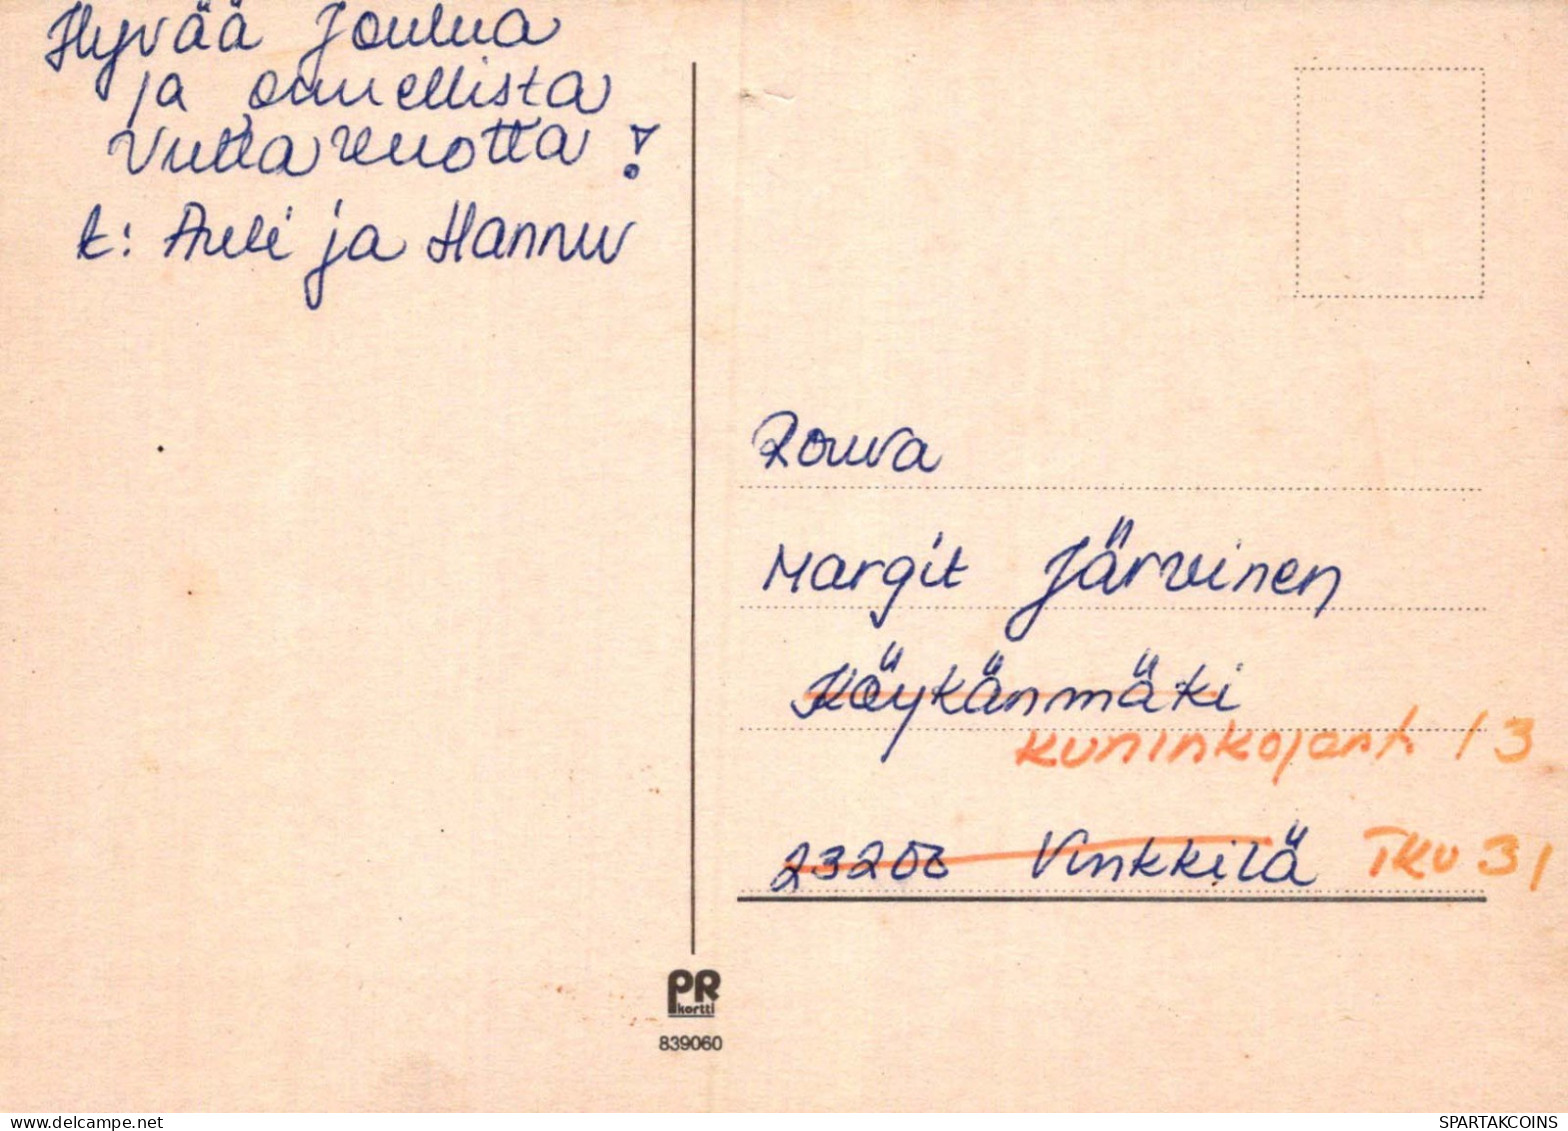 Hyvää Joulua
ja onnellista
Uutta vuotta!
t: Auli ja Hannu
Rouva
Margit Järvinen
Köykänmäki
Kuninkojank 13
23200 Vinkkilä TKU 31
PR
kortti
839060
delcampe.net
SPARTAKCOINS